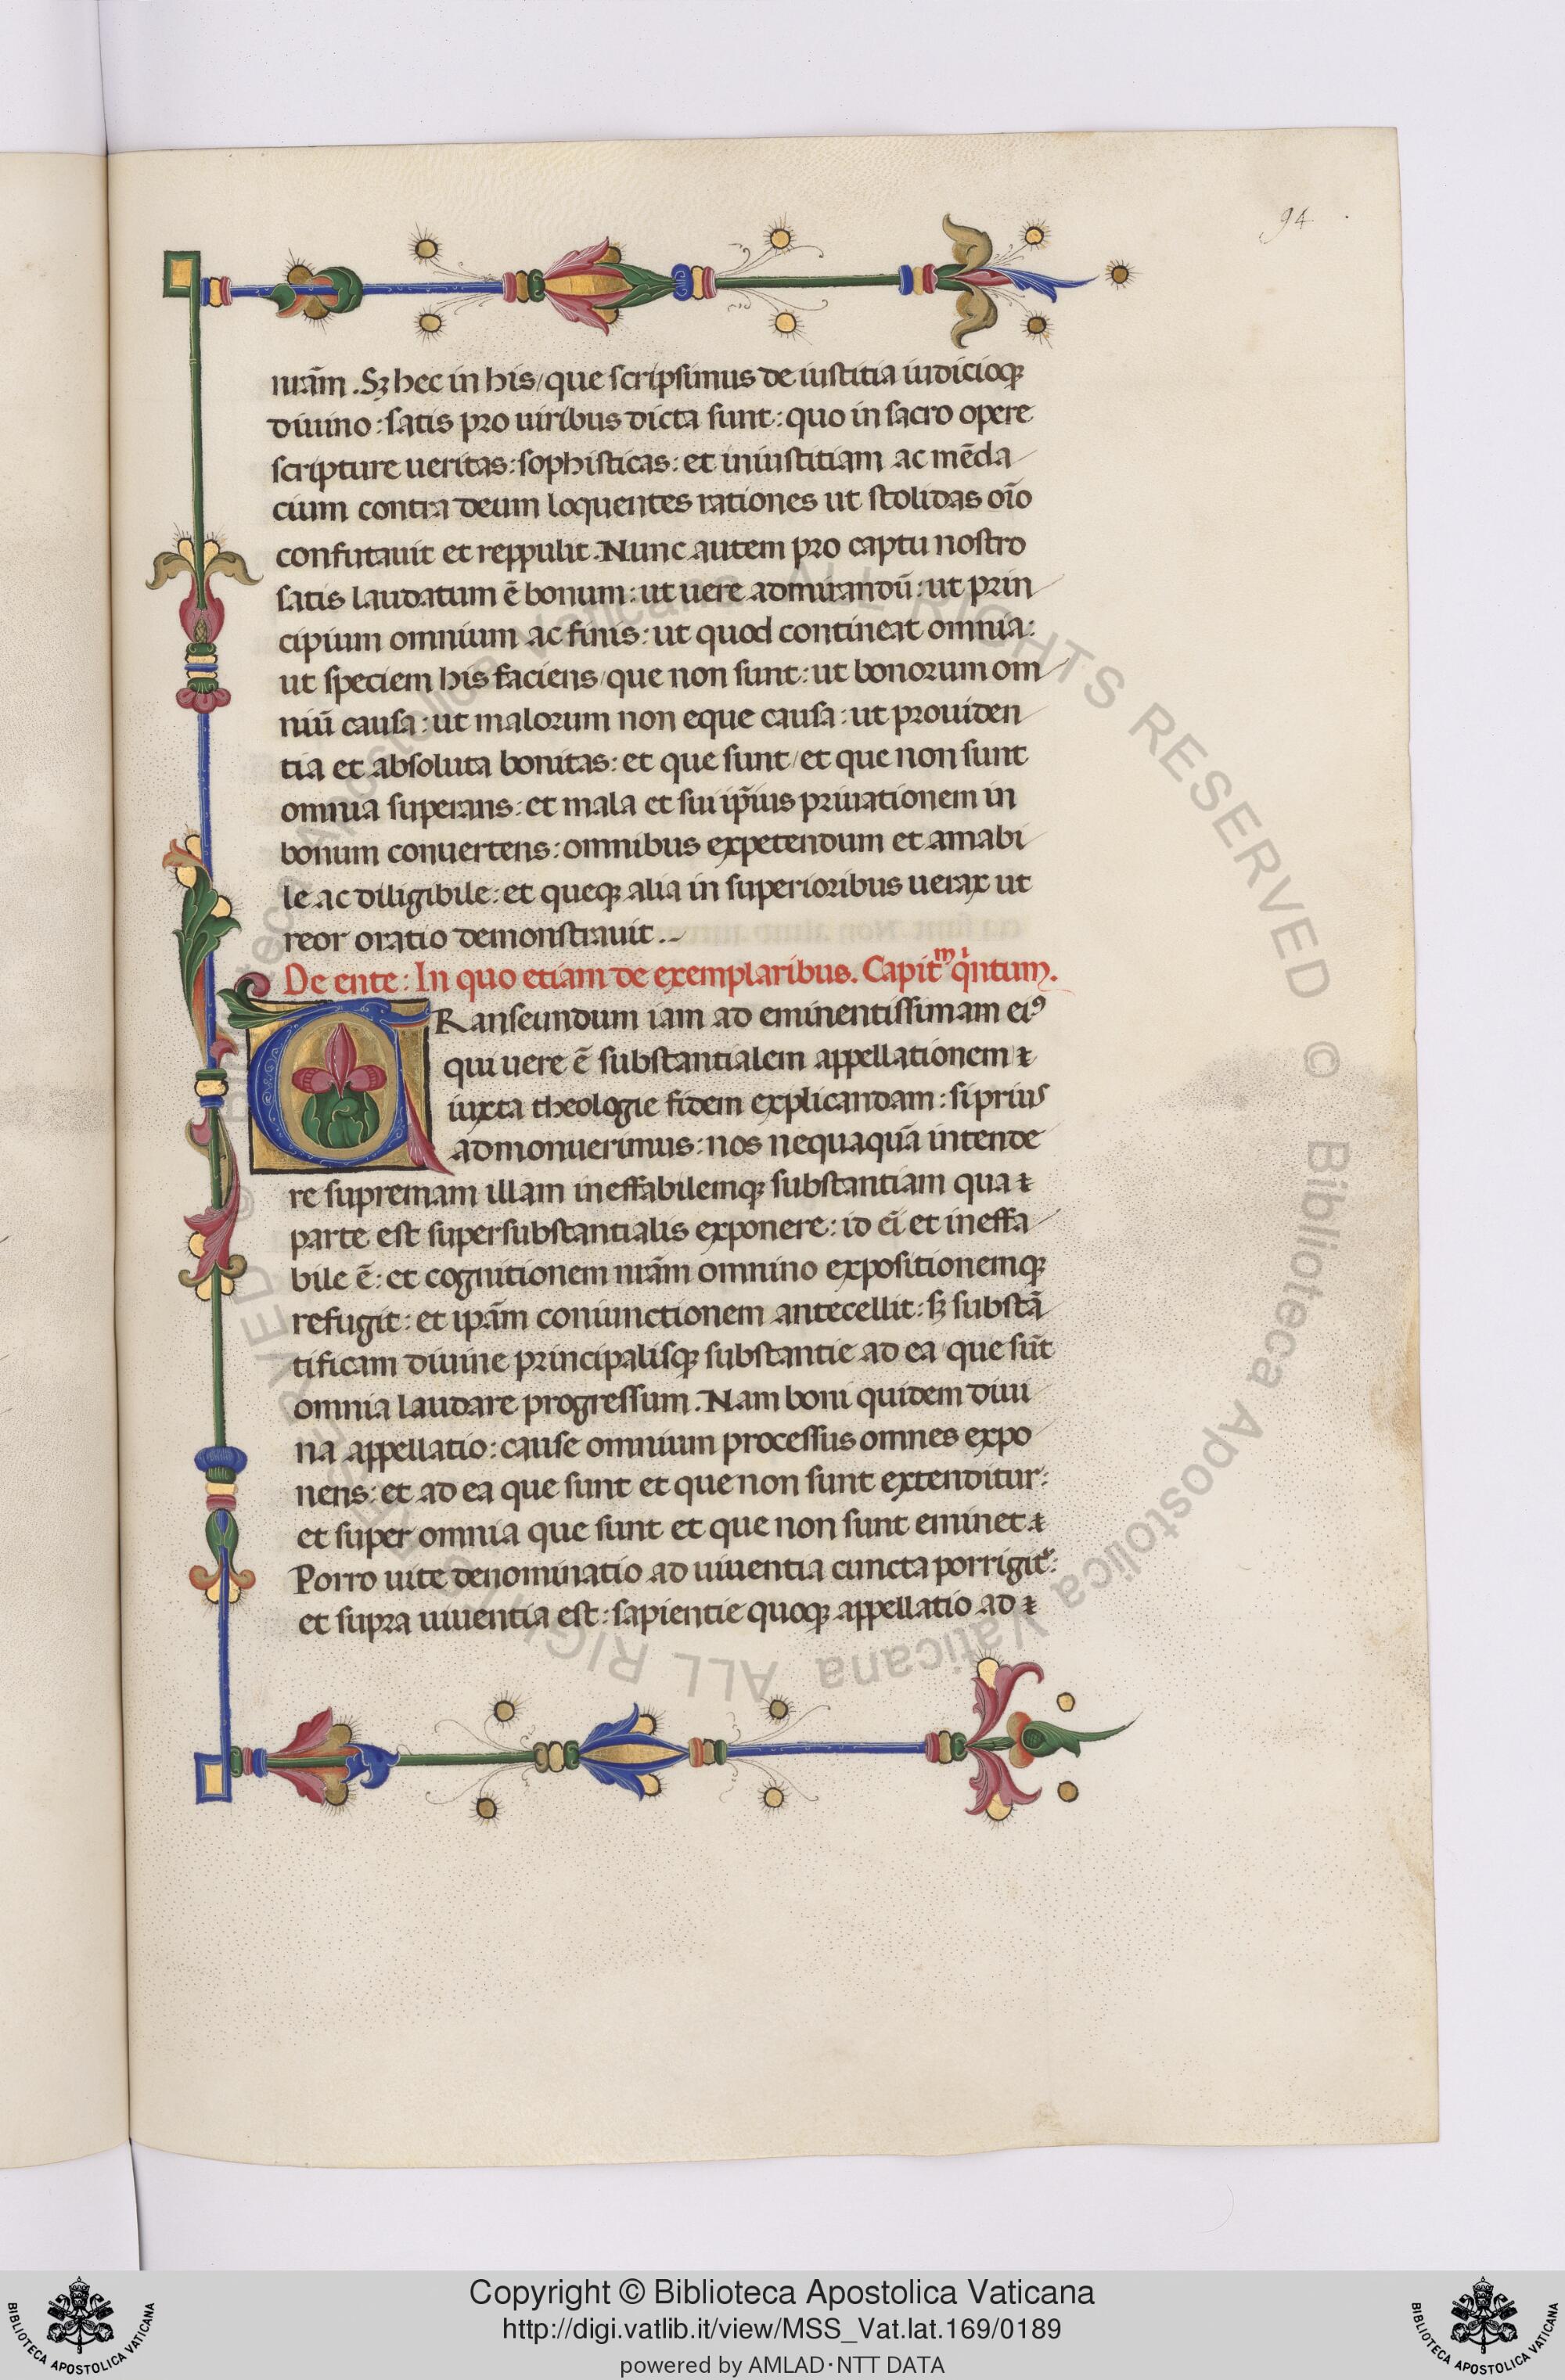 94
nrãm. Sꝫ hec in his/que scripsimus de iustitia iudicioqꝫ
diuino: satis pro uiribus dicta sunt: quo in sacro opere
scripture ueritas: sophisticas: et iniustitiam ac mẽda
cium contra deum loquentes rationes ut stolidas oĩo
confutauit et reppulit. Nunc autem pro captu nostro
satis laudatum ẽ bonum: ut uere admirandũ: ut prin
cipium omnium ac finis: ut quod contineat omnia:
ut speciem his faciens/que non sunt: ut bonorum om
niũ causa: ut malorum non eque causa: ut prouiden
tia et absoluta bonitas: et que sunt/et que non sunt
omnia superans: et mala et sui ip̃ius priuationem in
bonum conuertens: omnibus expetendum et amabi
le ac diligibile: et queqꝫ alia in superioribus uerax ut
reor oratio demonstrauit.~
De ente: In quo etiam de exemplaribus. Capit᷒ᵐ qͥntum.
TRanseundum iam ad eminentissimam eiꝰ
qui uere ẽ substantialem appellationem
iuxta theologie fidem explicandam: si prius
admonuerimus: nos nequaquã intende
re supremam illam ineffabilemqꝫ substantiam qua
parte est supersubstantialis exponere: id eĩ et ineffa
bile ẽ: et cognitionem nrãm omnino expositionemqꝫ
refugit: et ipãm coniunctionem antecellit: sꝫ substã
tificam diuine principalisqꝫ substantie ad ea/que sũt
omnia laudare progressum. Nam boni quidem diui
na appellatio: cause omnium processus omnes expo
nens: et ad ea que sunt et que non sunt extenditur:
et super omnia que sunt et que non sunt eminet.
Porro uite denominatio ad uiuentia cuncta porrigit᷑:
et supra uiuentia est: sapientie quoqꝫ appellatio ad
© Biblioteca Apostolica Vaticana ALL RIGHTS RESERVED © Biblioteca Apostolica Vaticana ALL RIGHTS RESERVED
Copyright © Biblioteca Apostolica Vaticana
http://digi.vatlib.it/view/MSS_Vat.lat.169/0189
powered by AMLAD·NTT DATA
BIBLIOTECA APOSTOLICA VATICANA
BIBLIOTECA APOSTOLICA VATICANA